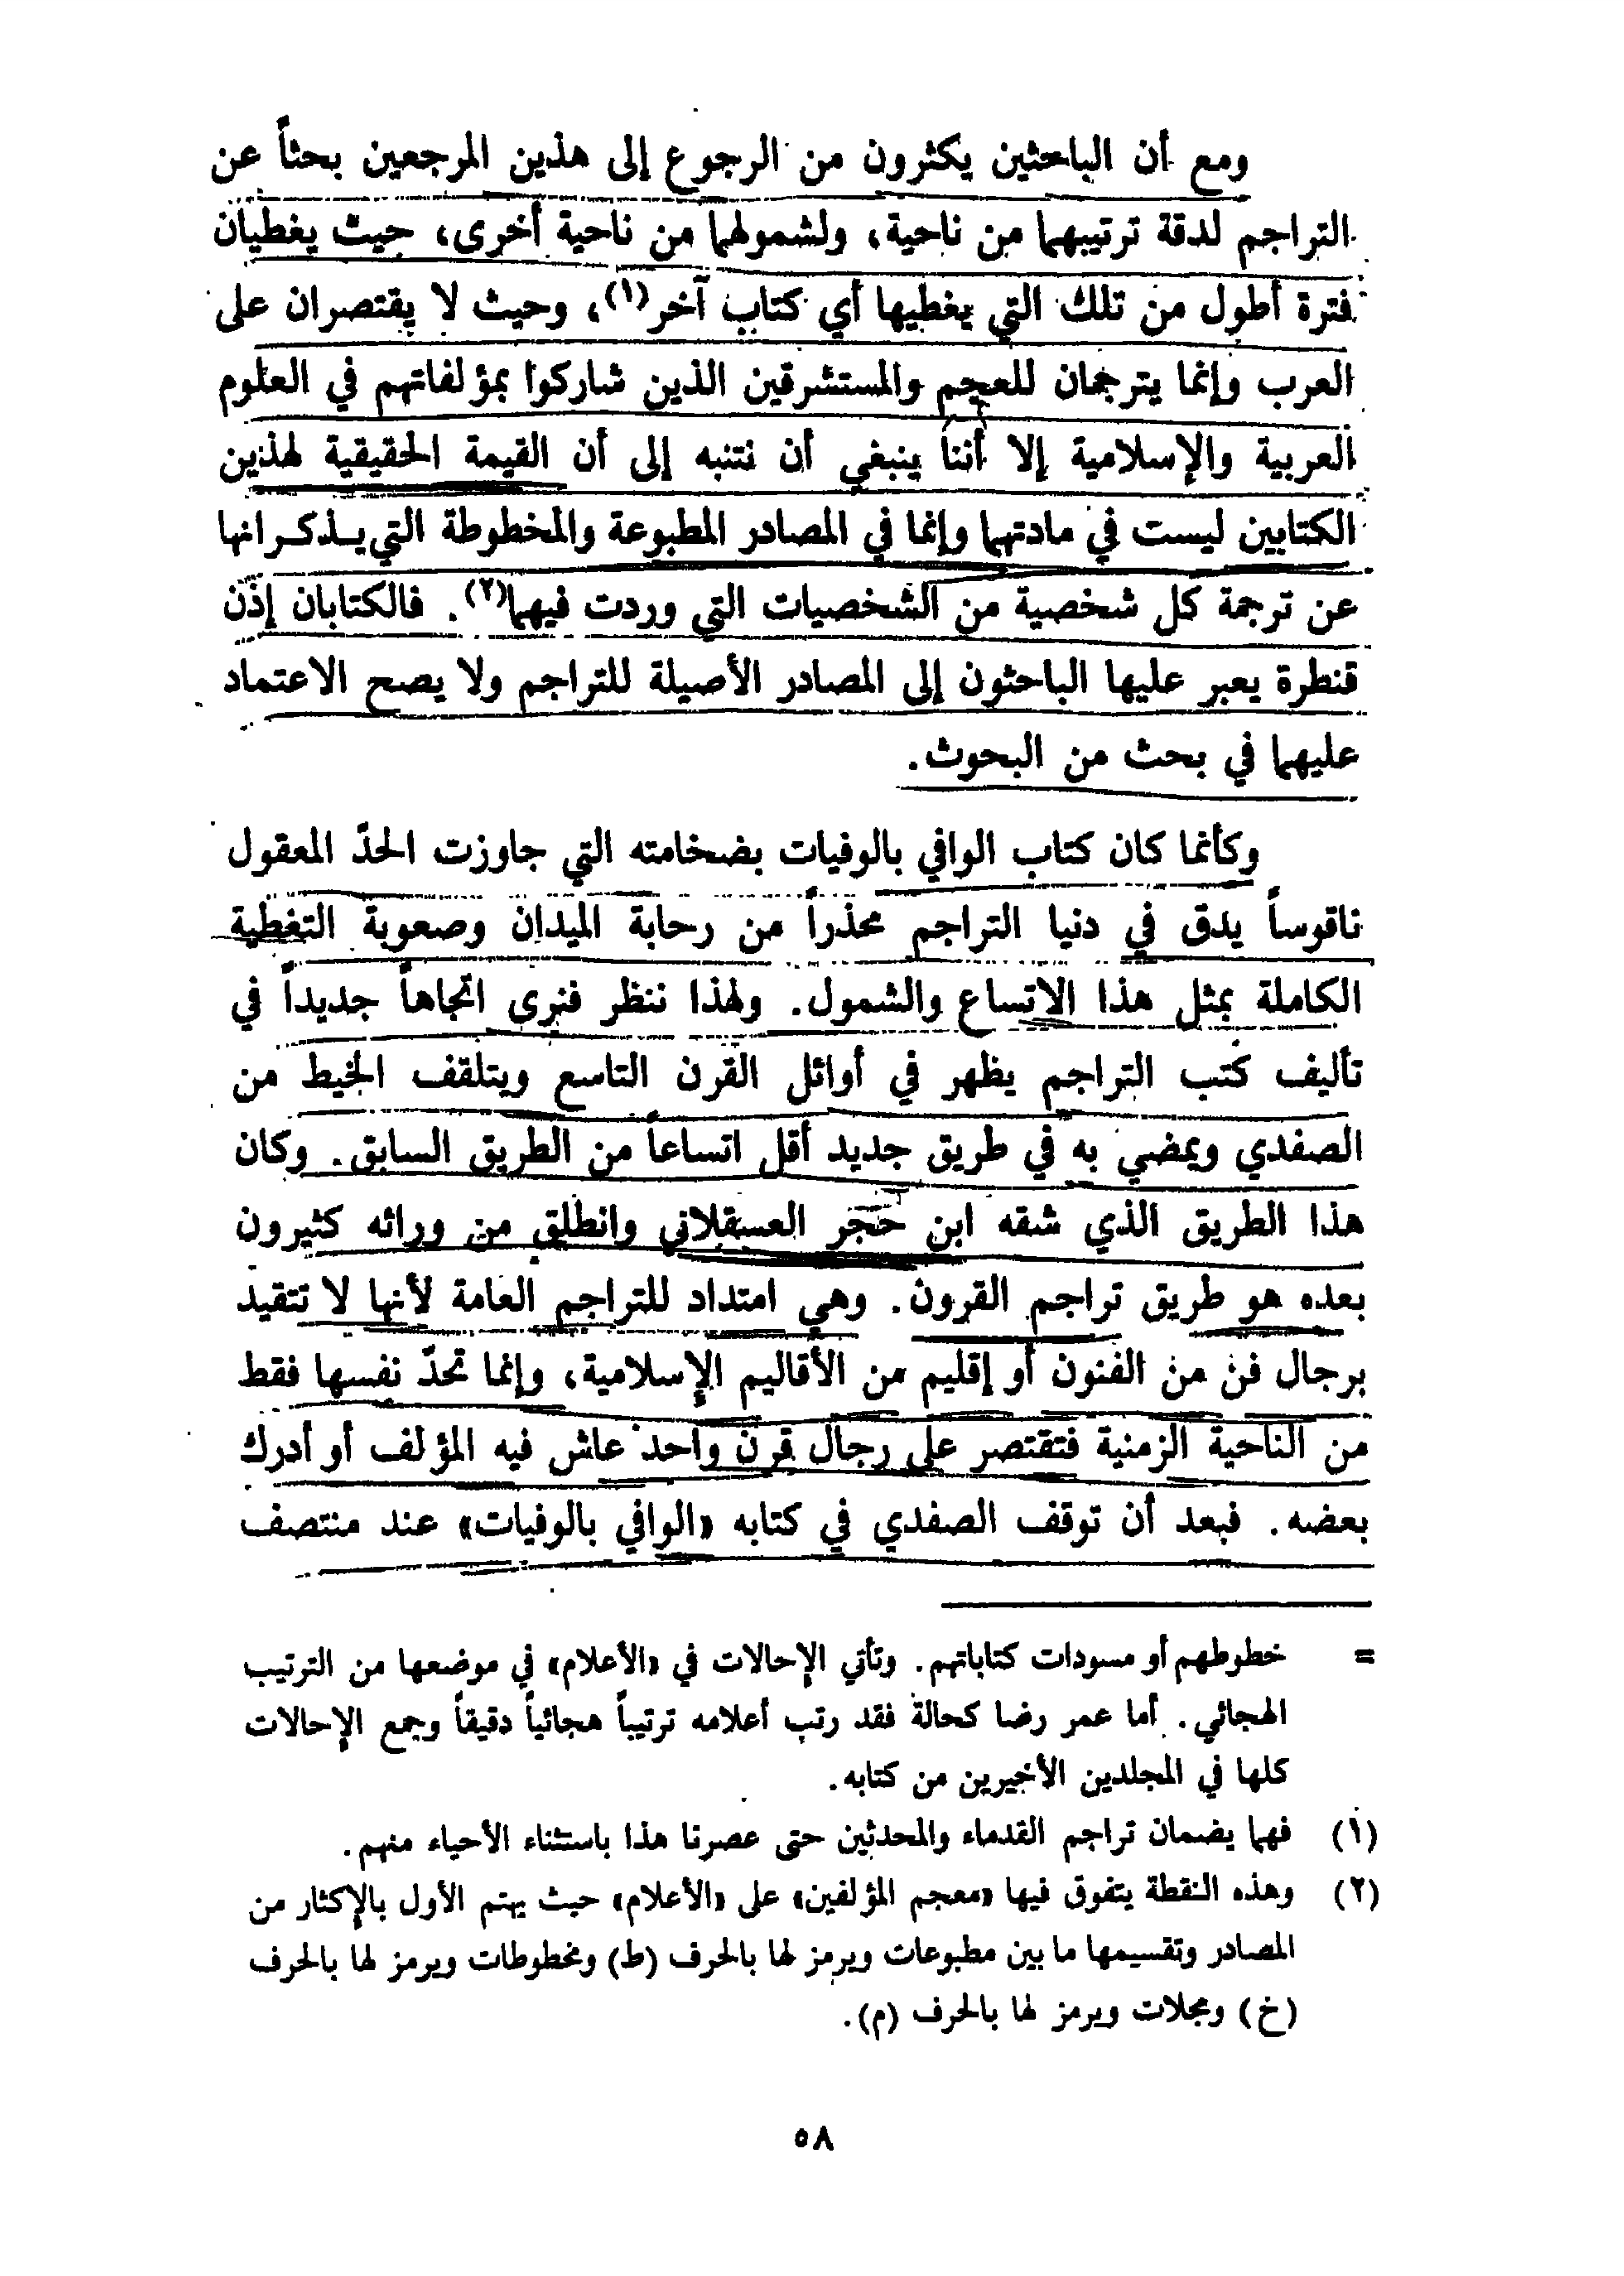 ومع أن الباحثين يكثرون من الرجوع إلى هذين المرجعين بحثاً عن
التراجم لدقة ترتيبهما من ناحية، ولشمولهما من ناحية أخرى، حيث يغطيان
فترة أطول من تلك التي يغطيها أي كتاب آخر(١)، وحيث لا يقتصران على
العرب وإنما يترجمان للعجم والمستشرقين الذين شاركوا بمؤلفاتهم في العلوم
العربية والإسلامية إلا أننا ينبغي أن نتنبه إلى أن القيمة الحقيقية لهذين
الكتابين ليست في مادتهما وإنما في المصادر المطبوعة والمخطوطة التي يـذكـرانها
عن ترجمة كل شخصية من الشخصيات التي وردت فيهما(٢). فالكتابان إذن
قنطرة يعبر عليها الباحثون إلى المصادر الأصيلة للتراجم ولا يصح الاعتماد
عليهما في بحث من البحوث.
وكأنما كان كتاب الوافي بالوفيات بضخامته التي جاوزت الحدّ المعقول
ناقوساً يدق في دنيا التراجم محذراً من رحابة الميدان وصعوبة التغطية
الكاملة بمثل هذا الاتساع والشمول. ولهذا ننظر فنرى اتجاهاً جديداً في
تأليف كتب التراجم يظهر في أوائل القرن التاسع ويتلقف الخيط من
الصفدي ويمضي به في طريق جديد أقل اتساعاً من الطريق السابق. وكان
هذا الطريق الذي شقه ابن حَجَر العسقلاني وانطلق من ورائه كثيرون
بعده هو طريق تراجم القرون. وهي امتداد للتراجم العامة لأنها لا تتقيد
برجال فن من الفنون أو إقليم من الأقاليم الإسلامية، وإنما تحدّ نفسها فقط
من الناحية الزمنية فتقتصر على رجال قرن واحد عاش فيه المؤلف أو أدرك
بعضه. فبعد أن توقف الصفدي في كتابه «الوافي بالوفيات» عند منتصف
= خطوطهم أو مسودات كتاباتهم. وتأتي الإحالات في «الأعلام» في موضعها من الترتيب
الهجائي. أما عمر رضا كحالة فقد رتب أعلامه ترتيباً هجائياً دقيقاً وجمع الإحالات
كلها في المجلدين الأخيرين من كتابه.
(١) فهما يضمان تراجم القدماء والمحدثين حتى عصرنا هذا باستثناء الأحياء منهم.
(٢) وهذه النقطة يتفوق فيها «معجم المؤلفين» على «الأعلام» حيث يهتم الأول بالإكثار من
المصادر وتقسيمها ما بين مطبوعات ويرمز لها بالحرف (ط) ومخطوطات ويرمز لها بالحرف
(خ) ومجلات ويرمز لها بالحرف (م).
٥٨